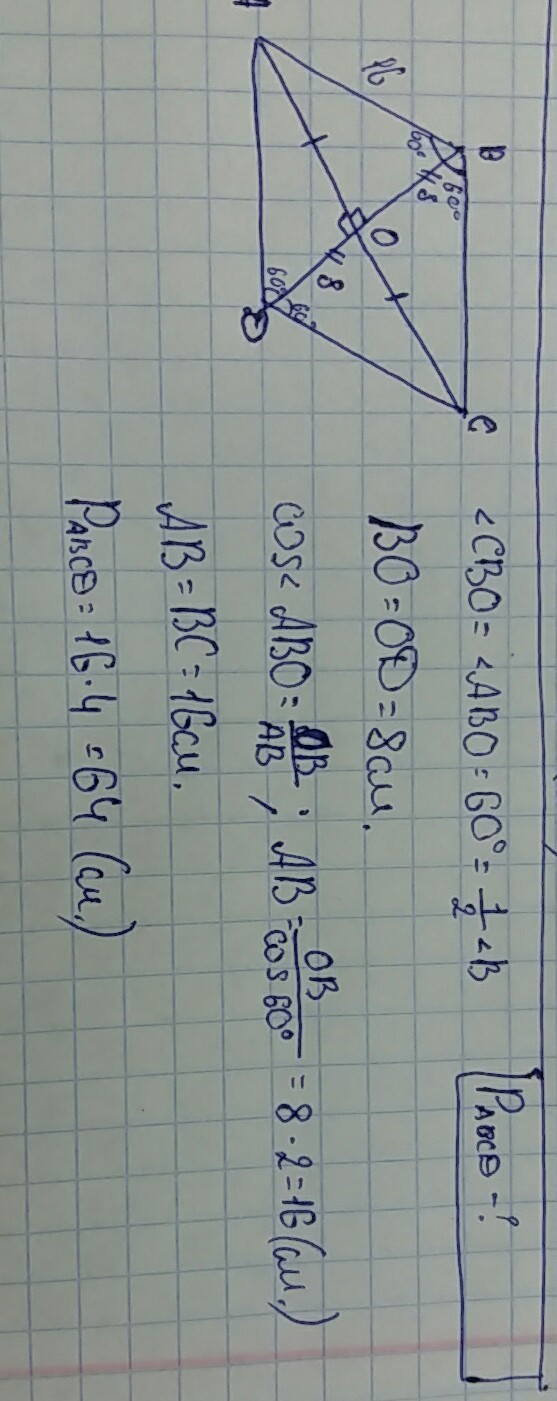 P_ABCD - ?
A
16
B
60°
60°
8
O
8
60°
60°
D
C
<CBO = <ABO = 60° = 1/2 <B
BO = OD = 8 см.
cos< ABO = OB/AB ; AB = OB/cos 60° = 8 · 2 = 16 (см.)
AB = BC = 16 см.
P_ABCD = 16 · 4 = 64 (см.)